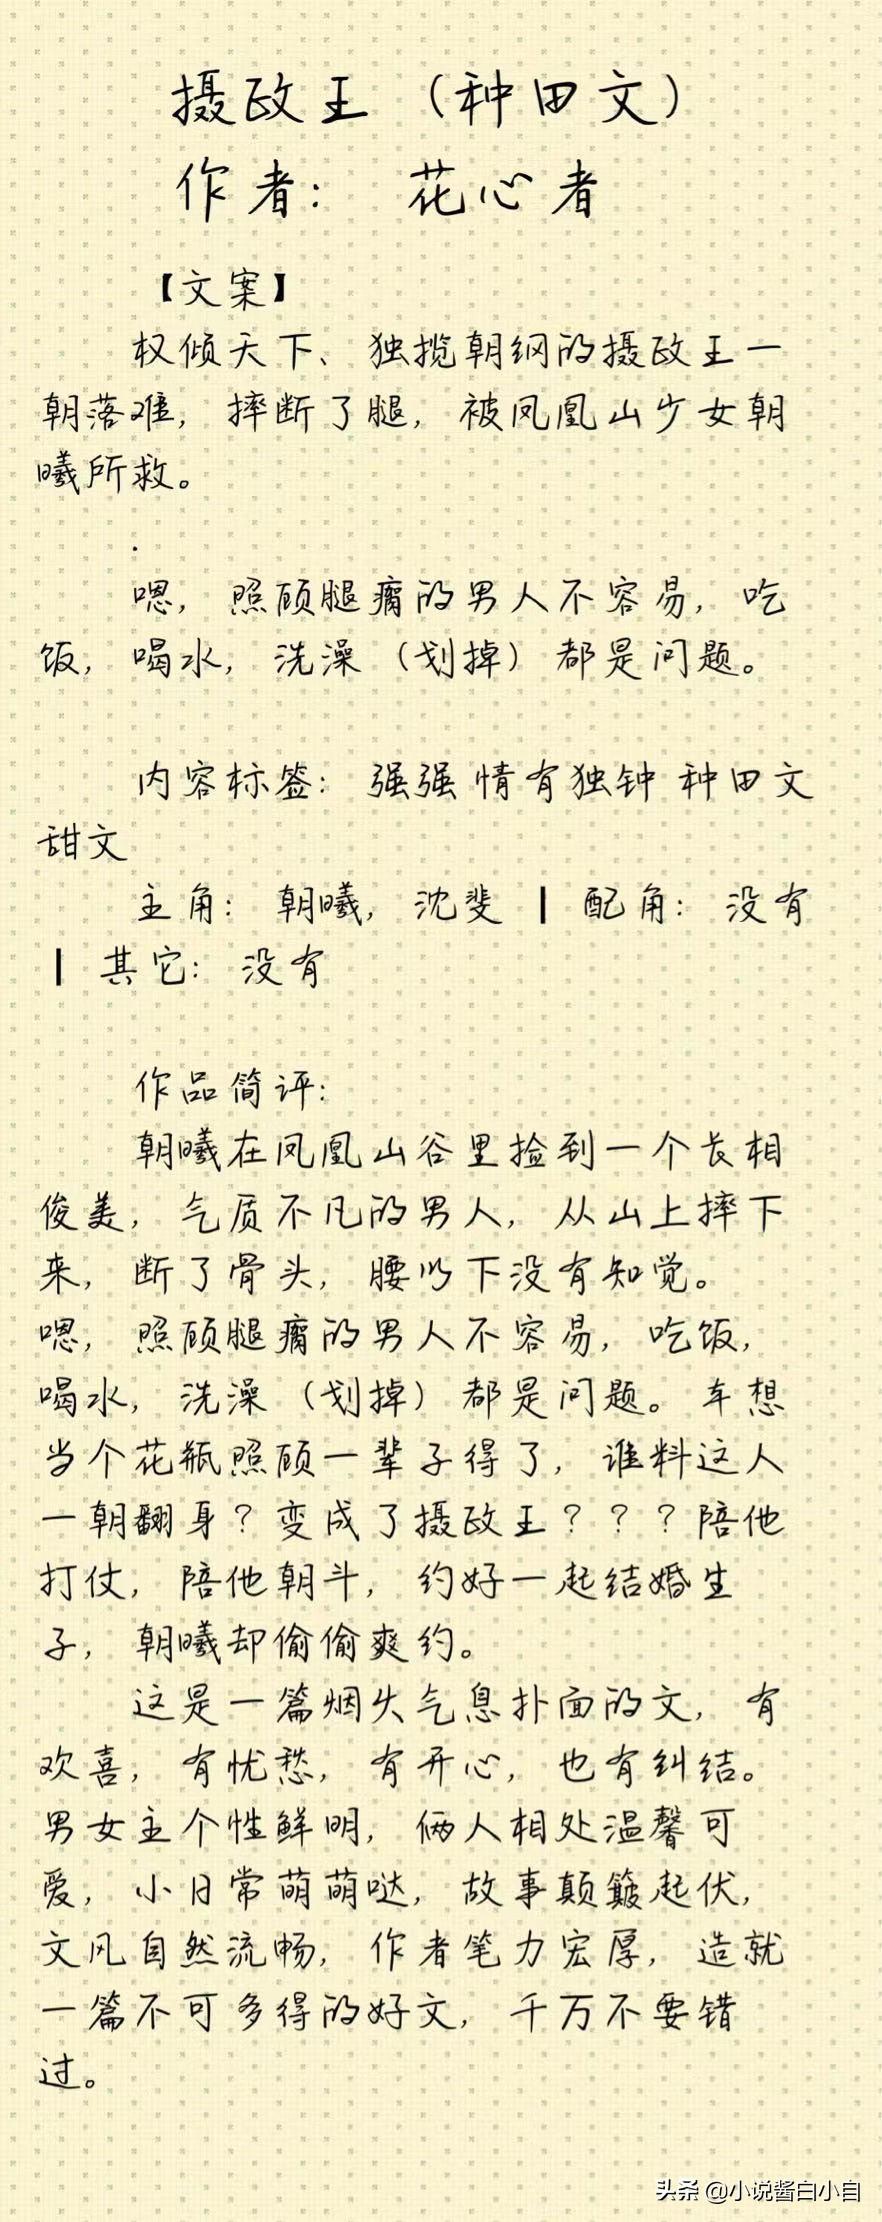 摄政王（种田文）
作者： 花心者
【文案】
权倾天下、独揽朝纲的摄政王一
朝落难，摔断了腿，被凤凰山少女朝
曦所救。
.
嗯，照顾腿瘸的男人不容易，吃
饭，喝水，洗澡（划掉）都是问题。
内容标签： 强强 情有独钟 种田文
甜文
主角： 朝曦，沈斐 ┃ 配角： 没有
┃ 其它： 没有
作品简评：
朝曦在凤凰山谷里捡到一个长相
俊美，气质不凡的男人，从山上摔下
来，断了骨头，腰以下没有知觉。
嗯，照顾腿瘸的男人不容易，吃饭，
喝水，洗澡（划掉）都是问题。本想
当个花瓶照顾一辈子得了，谁料这人
一朝翻身？变成了摄政王？？？陪他
打仗，陪他朝斗，约好一起结婚生
子，朝曦却偷偷爽约。
这是一篇烟火气息扑面的文，有
欢喜，有忧愁，有开心，也有纠结。
男女主个性鲜明，俩人相处温馨可
爱，小日常萌萌哒，故事颠簸起伏，
文风自然流畅，作者笔力宏厚，造就
一篇不可多得的好文，千万不要错
过。
头条 @小说酱白小自